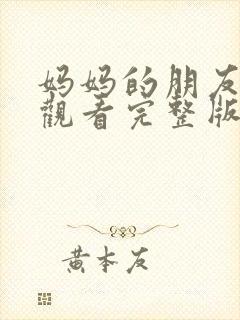 妈妈的朋友
觀看完整版
黄本友